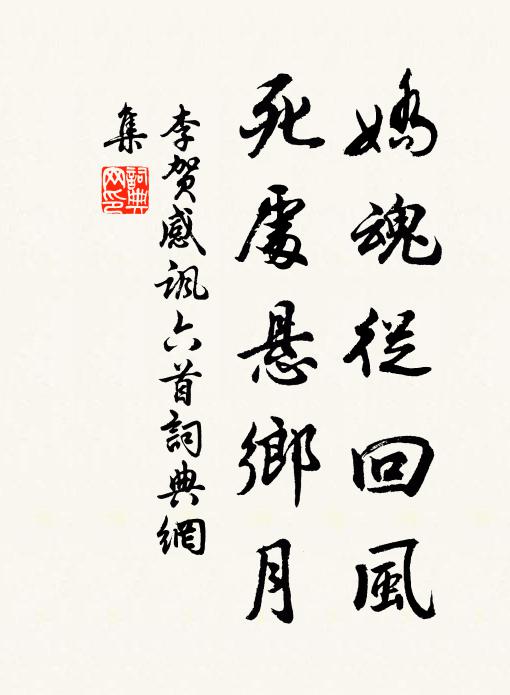 嬌魂從回風
死處悬鄉月
李贺感讽六首詞典網
集
詞典
网印